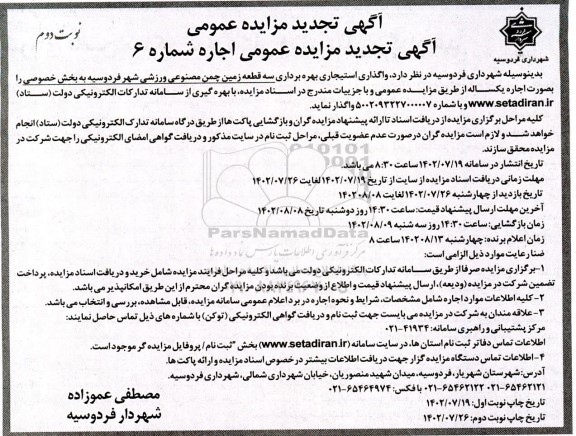 آگهی تجدید مزایده عمومی
نوبت دوم
آگهی تجدید مزایده عمومی اجاره شماره ۶
شهرداری فردوسیه
بدینوسیله شهرداری فردوسیه در نظر دارد، واگذاری استیجاری بهره برداری سه قطعه زمین چمن مصنوعی ورزشی شهر فردوسیه به بخش خصوصی را
بصورت اجاره یکساله از طریق مزایده عمومی و با جزییات مندرج در اسناد مزایده، با بهره گیری از سامانه تدارکات الکترونیکی دولت (ستاد)
www.setadiran.ir و با شماره ۵۰۰۲۰۹۳۲۲۷۰۰۰۰۰۷ واگذار نماید.
کلیه مراحل برگزاری مزایده از دریافت اسناد تا ارائه پیشنهاد مزایده گران و بازگشایی پاکت ها از طریق درگاه سامانه تدارک الکترونیکی دولت (ستاد) انجام
خواهد شد و لازم است مزایده گران در صورت عدم عضویت قبلی، مراحل ثبت نام در سایت مذکور و دریافت گواهی امضای الکترونیکی را جهت شرکت در
مزایده محقق سازند.
تاریخ انتشار در سامانه ۱۴۰۲/۰۷/۱۹ ساعت ۸:۳۰ می باشد.
مهلت زمانی دریافت اسناد مزایده از سایت از تاریخ ۱۴۰۲/۰۷/۱۹ لغایت ۱۴۰۲/۰۷/۲۶
تاریخ بازدید از چهارشنبه ۱۴۰۲/۰۷/۲۶ لغایت ۱۴۰۲/۰۸/۰۸
آخرین مهلت ارسال پیشنهاد قیمت: ساعت ۱۴:۳۰ روز دوشنبه تاریخ ۱۴۰۲/۰۸/۰۸
زمان بازگشایی: ساعت ۱۴:۳۰ روز سه شنبه ۱۴۰۲/۰۸/۰۹
زمان اعلام برنده: چهارشنبه ۱۴۰۲/۰۸/۱۳ ساعت ۸
ضمنا رعایت موارد ذیل الزامی است:
۱-برگزاری مزایده صرفا از طریق سامانه تدارکات الکترونیکی دولت می باشد و کلیه مراحل فرایند مزایده شامل خرید و دریافت اسناد مزایده، پرداخت
تضمین شرکت در مزایده (ودیعه)، ارسال پیشنهاد قیمت و اطلاع از وضعیت برنده بودن مزایده گران محترم از این طریق امکانپذیر می باشد.
۲-کلیه اطلاعات موارد اجاره شامل مشخصات، شرایط و نحوه اجاره در برد اعلام عمومی سامانه مزایده، قابل مشاهده، بررسی و انتخاب می باشد.
۳-علاقه مندان به شرکت در مزایده می بایست جهت ثبت نام و دریافت گواهی الکترونیکی (توکن) با شماره های ذیل تماس حاصل نمایند:
مرکز پشتیبانی و راهبری سامانه: ۴۱۹۳۴-۰۲۱
اطلاعات تماس دفاتر ثبت نام استان ها، در سایت سامانه (www.setadiran.ir) بخش "ثبت نام / پروفایل مزایده گر موجود است.
۴-اطلاعات تماس دستگاه مزایده گزار جهت دریافت اطلاعات بیشتر در خصوص اسناد مزایده و ارائه پاکت ها.
آدرس: شهرستان شهریار، فردوسیه، میدان شهید منصوریان، خیابان شهرداری شمالی، شهرداری فردوسیه.
۰۲۱-۶۵۴۶۲۱۲۱ ۰۲۱-۶۵۴۶۲۱۲۲ با فکس: ۰۲۱-۶۵۴۶۴۹۷۴
تاریخ چاپ نوبت اول: ۱۴۰۲/۰۷/۱۹
تاریخ چاپ نوبت دوم: ۱۴۰۲/۰۷/۲۶
مصطفی عموزاده
شهردار فردوسیه
ParsNamadData